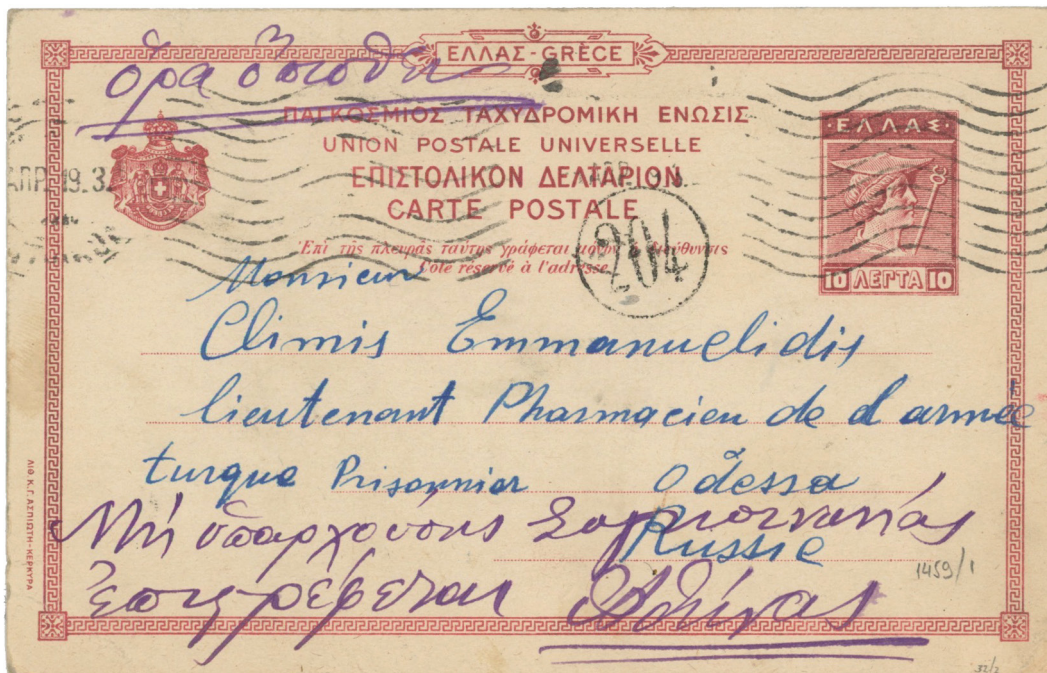 ΕΛΛΑΣ-GRÈCE
ὅρα ὄπισθεν
ΠΑΓΚΟΣΜΙΟΣ ΤΑΧΥΔΡΟΜΙΚΗ ΕΝΩΣΙΣ
UNION POSTALE UNIVERSELLE
ΕΠΙΣΤΟΛΙΚΟΝ ΔΕΛΤΑΡΙΟΝ
CARTE POSTALE
Ἐπὶ τῆς πλευρᾶς ταύτης γράφεται μόνον ἡ διεύθυνσις
Côté réservé à l'adresse
·ΕΛΛΑΣ·
10 ΛΕΠΤΑ 10
ΑΠΡ 19.32
204
Monsieur
Climis Emmanuelidis
lieutenant Pharmacien de d armée
turque Prisonnier Odessa
Russie
Μὴ ὑπαρχούσης Συγκοινωνίας
ἐπιστρέφεται Ἀθήνας
ΛΙΘ. Κ. Γ. ΑΣΠΙΩΤΗ-ΚΕΡΚΥΡΑ
1459/1
32/2